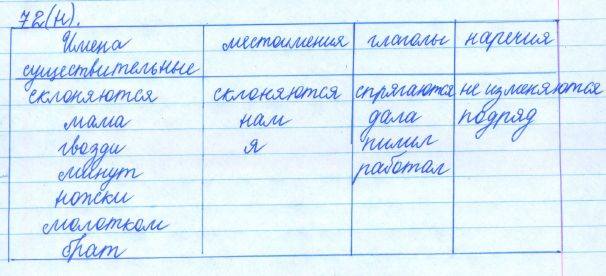 72(н).
Имена существительные местоимения глаголы наречия
склоняются склоняются спрягаются не изменяются
мама нам дала подряд
гвозди я пилил
минут работал
ножки
молотком
брат